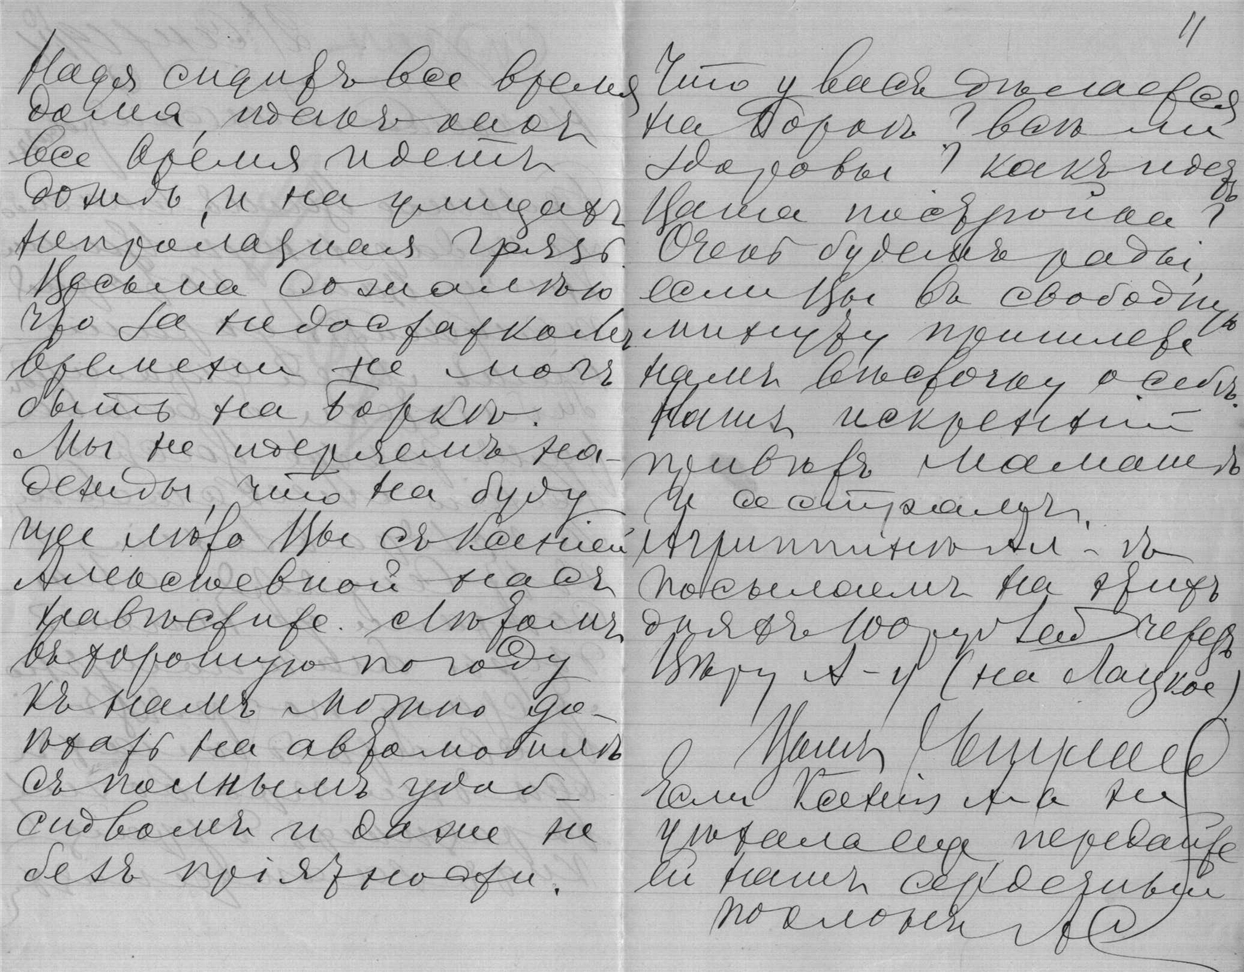 Надя сидитъ все время
дома, такъ какъ
все время идетъ
дождь, и на улицахъ
непролазная грязь.
Весьма сожалѣю
что за недостаткомъ
времени не могъ
быть на Боркѣ.
Мы не теряемъ на-
дежды, что на буду
щее лѣто Вы съ Ксеніей
Алексѣевной насъ
навѣстите. Лѣтомъ
въ хорошую погоду
къ намъ можно до-
ѣхать на автомобилѣ
съ полнымъ удоб-
ствомъ и даже не
безъ пріятности.
11
Что у васъ дѣлается
на Боркѣ? всѣ ли
здоровы? какъ идетъ
Ваша постройка?
Очень будемъ рады,
если Вы въ свободную
минуту пришлете
намъ вѣсточку о себѣ.
Нашъ искренній
привѣтъ Мамашѣ
и сестрамъ.
Агриппинѣ Ал-нѣ
посылаемъ на этихъ
дняхъ 100 рублей черезъ
Вѣру А-у (на Лацкое)
Вашъ
Если Ксенія Ал-а не
уѣхала еще передайте
ей нашъ сердечный
поклонъ АС